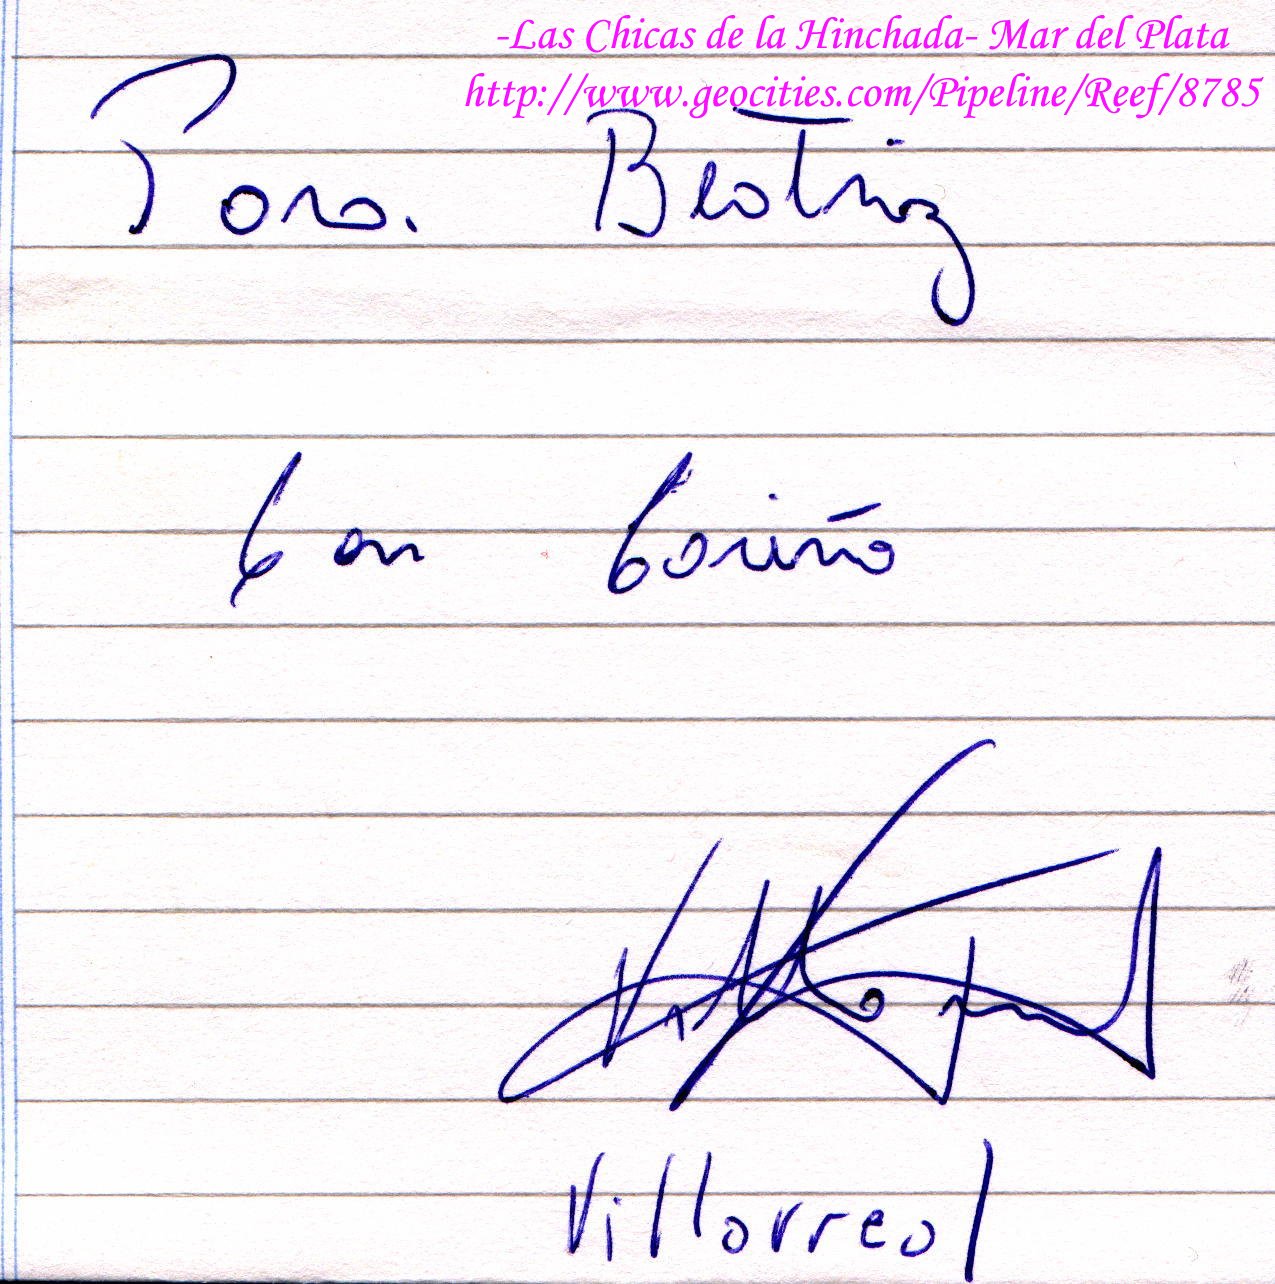 -Las Chicas de la Hinchada- Mar del Plata
http://www.geocities.com/Pipeline/Reef/8785
Para. Beatriz
Con Cariño
Villarreal